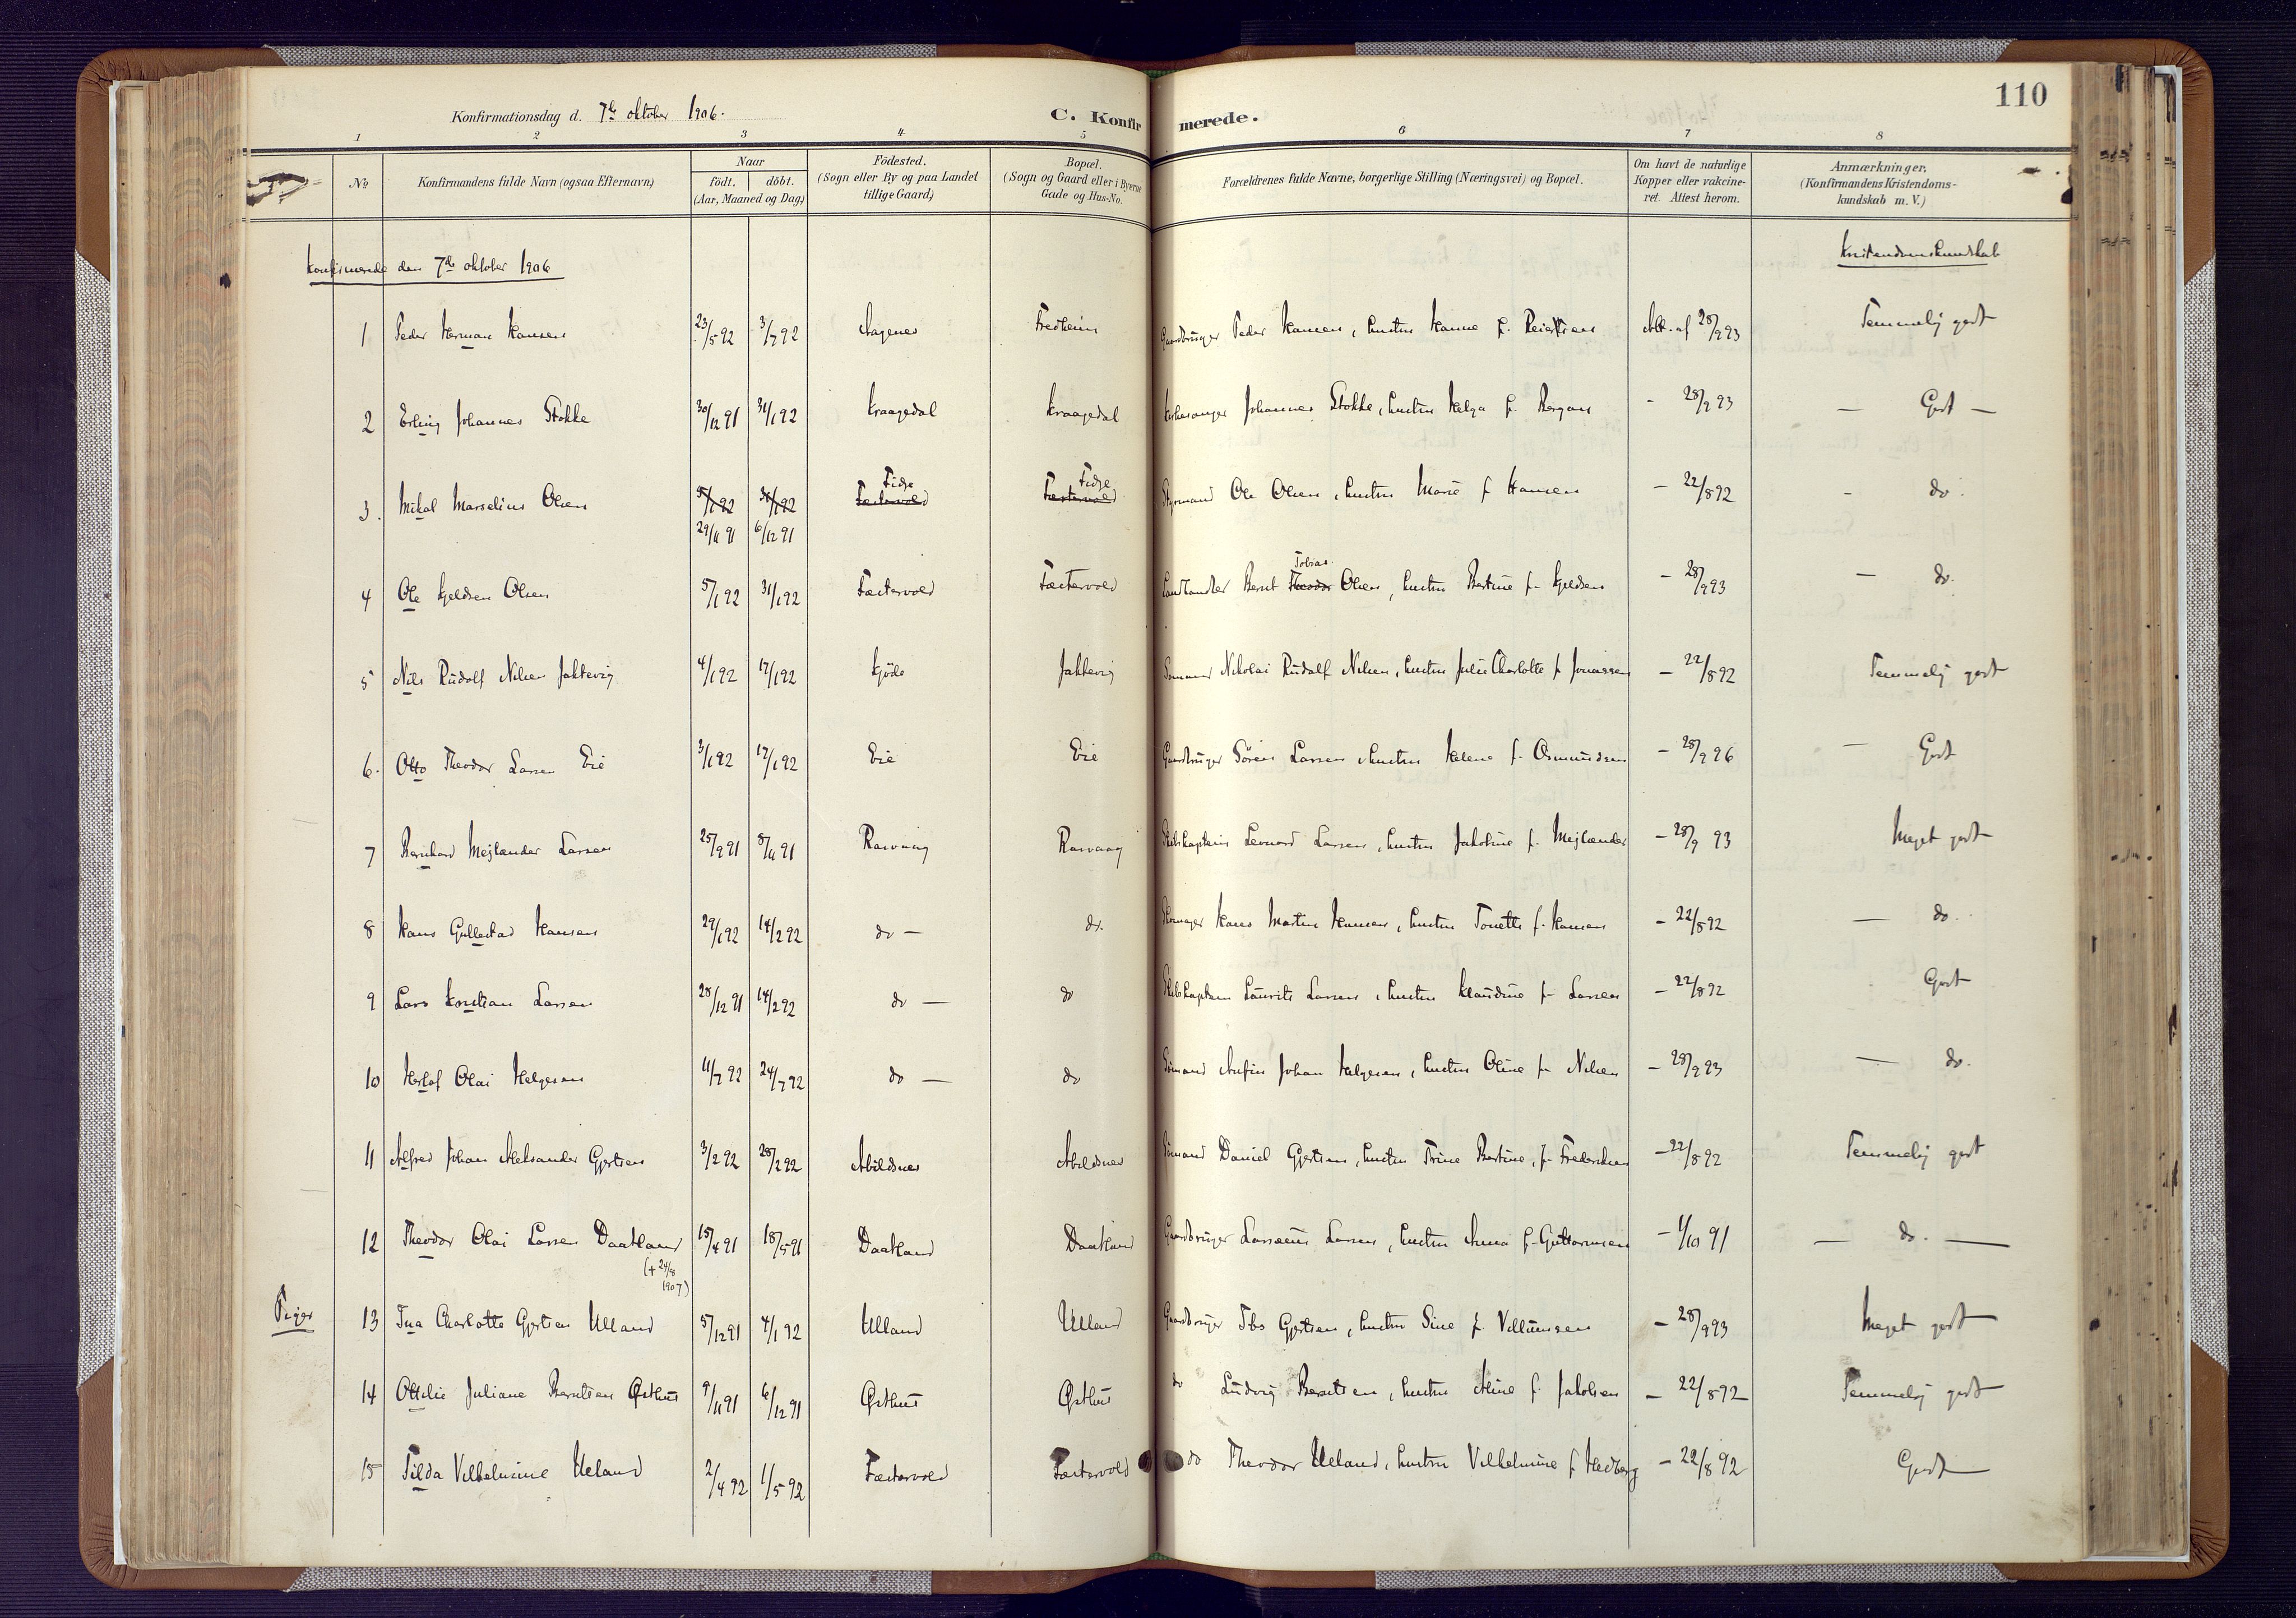 110
Konfirmationsdag d. 7de oktober 1906.
C. Konfirmerede.
1 2 3 4 5 6 7 8
No
Konfirmandens fulde Navn (ogsaa Efternavn)
Naar
födt. döbt.
(Aar, Maaned og Dag)
Födested.
(Sogn eller By og paa Landet
tillige Gaard)
Bopæl.
(Sogn og Gaard eller i Byerne
Gade og Hus-No.
Forældrenes fulde Navne, borgerlige Stilling (Næringsvei) og Bopæl.
Om havt de naturlige
Kopper eller vakcine-
ret. Attest herom.
Anmærkninger.
(Konfirmandens Kristendoms-
kundskab m. V.)
Konfirmerede den 7de oktober 1906
Kristendomskundskab
1 Peder Herman Hansen 23/5 92 3/7 92 Aagenes Fredheim Gaardbruger Peder Hansen, hustru Hanne f. Reiersen Att. af 28/9 93 Temmelig godt
2 Erling Johannes Stokke 30/12 91 31/1 92 Kraagedal Kraagedal Kirkesanger Johannes Stokke, hustru Helga f. Bergan - 28/9 93 — Godt —
Fidje Fidje
3. Mikal Marselius Olsen 5/1 92 31/1 92 Fæstervold Fæstervold Styrmand Ole Olsen, hustru Marie f Hansen - 22/8 92 - do.
29/11 91 6/12 91
Tobias
4 Ole Kjeldsen Olsen 5/1 92 31/1 92 Fæstervold Fæstervold Landhandler Bernt Theodor Olsen, hustru Bertine f. Kjeldsen - 28/9 93 — do.
5 Nils Rudolf Nilsen Jaktevig 4/1 92 17/1 92 Kjöde Jaktevig Sömand Nikolai Rudolf Nilsen, hustru Julie Charlotte f. Jonassen - 22/8 92 Temmelig godt
6. Otto Theodor Larsen Eie 3/1 92 17/1 92 Eie Eie Gaardbruger Sören Larsen, hustru Helene f. Osmundsen - 28/9 96 — Godt
7 Bernhard Mejlænder Larsen 25/9 91 8/11 91 Rasvaag Rasvaag Skibskaptein Leonard Larsen, hustru Jakobine f. Mejlænder - 28/9 93 Meget godt
8 Hans Gullestad Hansen 29/1 92 14/2 92 do — do. Skomager Hans Martin Hansen, hustru Tonette f. Hansen - 22/8 92 — do.
9 Lars Kristian Larsen 28/12 91 14/2 92 do — do Skibskaptein Laurits Larsen, hustru Klaudine f. Larsen - 22/8 92 Godt
10 Herlof Olai Helgesen 11/7 92 24/7 92 do — do Sömand Anfin Johan Helgesen, hustru Oline f. Nilsen - 28/9 93 — do.
11 Alfred Johan Aleksander Gjertsen 3/2 92 28/2 92 Abildsnes Abildsnes Sömand Daniel Gjertsen, hustru Trine Bertine, f. Fredriksen - 22/8 92 Temmelig godt
12 Theodor Olai Larsen Daatland 15/4 91 18/5 91 Daatland Daatland Gaardbruger Larsæus Larsen, hustru Anna f. Guttormsen - 1/10 91 — do. —
(+ 24/8
1907)
Piger
13 Ina Charlotte Gjertsen Ulland 5/12 91 4/1 92 Ulland Ulland Gaardbruger Tbs Gjertsen, hustru Sine f. Villumsen - 28/9 93 Meget godt
14 Ottilie Juliane Berntsen Østhus 9/11 91 6/12 91 Østhus Østhus do Ludvig Berntsen, hustru Aline f. Jakobsen - 22/8 92 Temmelig godt
15 Tilda Vilhelmine Ueland 2/4 92 1/5 92 Fæstervold Fæstervold do Theodor Ueland, hustru Vilhelmine f Hedberg - 22/8 92 Godt